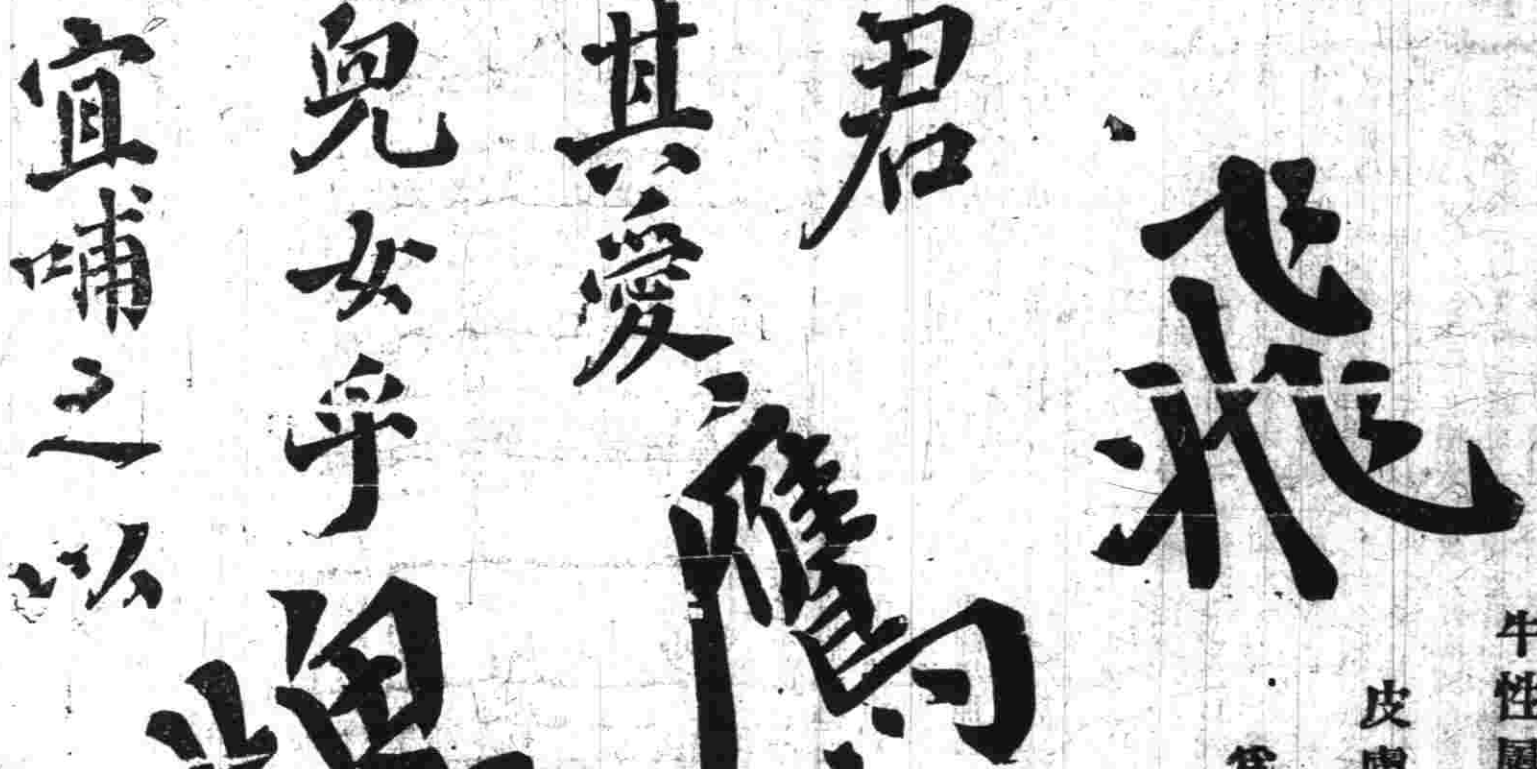 牛性
皮
飛鷹牌
君
其愛
兒女乎
宜哺之以